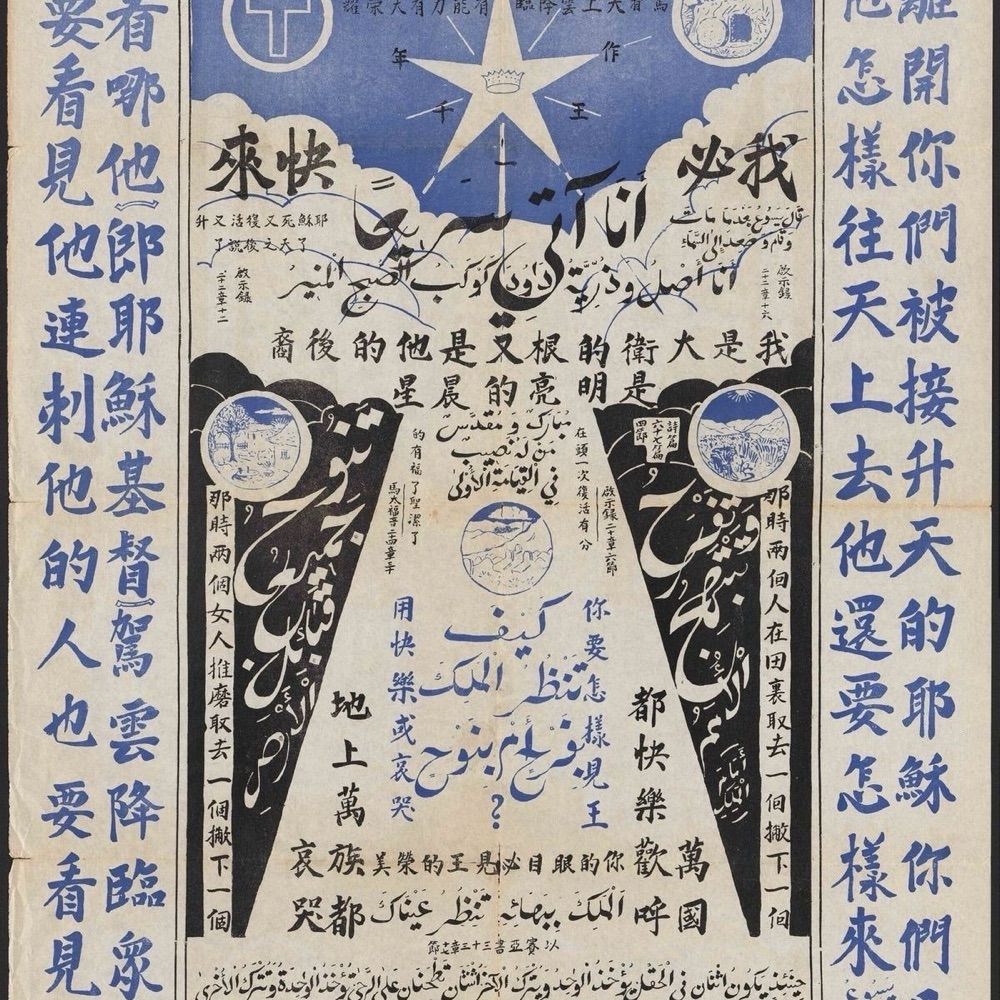 離開你們被接升天的耶穌你們
他怎樣往天上去他還要怎樣來
駕着天上雲降臨 有能力有大榮耀
作王
千年
我必快來
أنا آتي سريعا
قال يسوع بعدما مات
وقام وصعد إلى السماء
耶穌死又復活又升
了天之後說了
أنا أصل وذرية داود كوكب الصبح المنير
啟示錄
二十二章十六
啟示錄
二十二章十二
我是大衛的根又是他的後裔
是明亮的晨星
مبارك ومقدس
من له نصيب
في القيامة الأولى
在頭一次復活有分
啟示錄二十章六節
的有福了聖潔了
詩篇
六十七篇
四節
وتفرح
وتبتهج
الأمم
تنوح
جميع
قبائل
الأرض
那時兩個人在田裏取去一個撇下一個
那時兩個女人推磨取去一個撇下一個
你要怎樣見王
用快樂或哀哭
كيف
تنظر الملك
بفرح أم بنوح
?
萬國
都快樂歡呼
地上萬族都
哀哭
你的眼目必見王的榮美
الملك ببهائه تنظر عيناك
以賽亞書三十三章十七節
حينئذ يكون اثنان في الحقل يؤخذ الواحد ويترك الآخر اثنتان تطحنان على الرحى تؤخذ الواحدة وتترك الأخرى
看哪他(即耶穌基督)駕雲降臨眾
要看見他連刺他的人也要看見